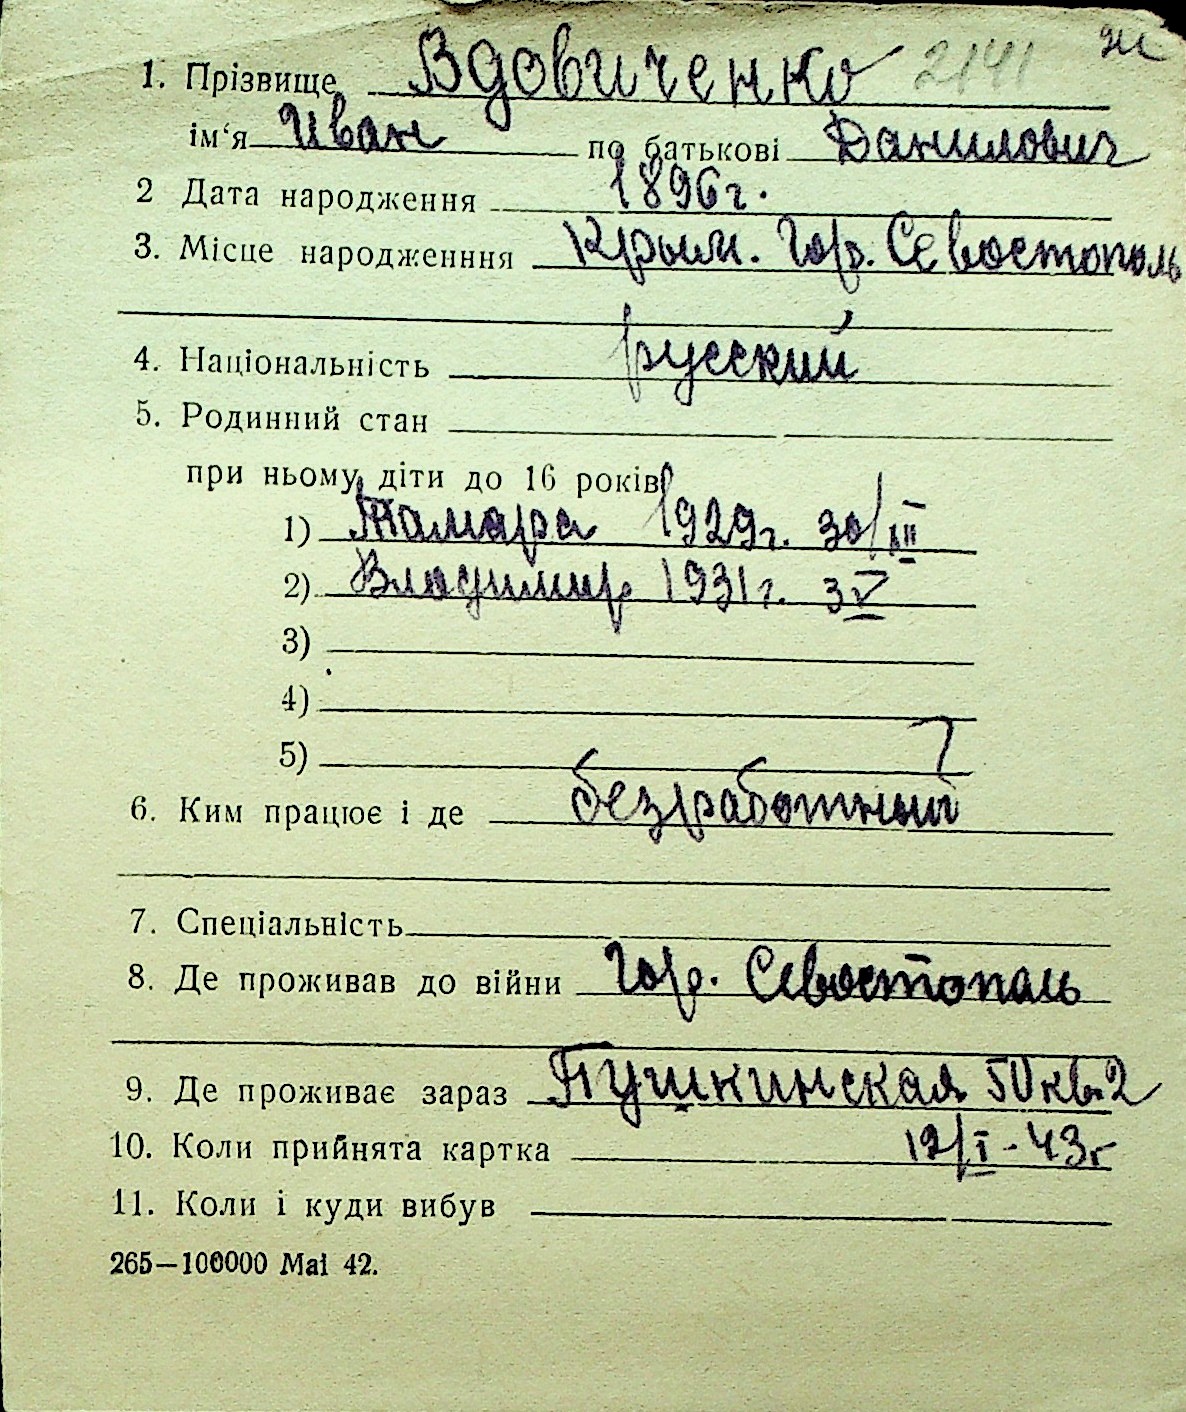 1. Прізвище Вдовиченко 2141
ім‘я Иван по батькові Данилович
2 Дата народження 1896г.
3. Місце народженння Крым. Гор. Севостополь
4. Національність русский
5. Родинний стан
при ньому діти до 16 років
1) Тамара 1929г. 30/XII
2) Владимир 1931г. 3 V
3)
4)
5)
6. Ким працює і де безработный
7. Спеціальність
8. Де проживав до війни Гор. Севостополь
9. Де проживає зараз Пушкинская 50 кв. 2
10. Коли прийнята картка 12/I - 43г
11. Коли і куди вибув
265—100000 Mai 42.